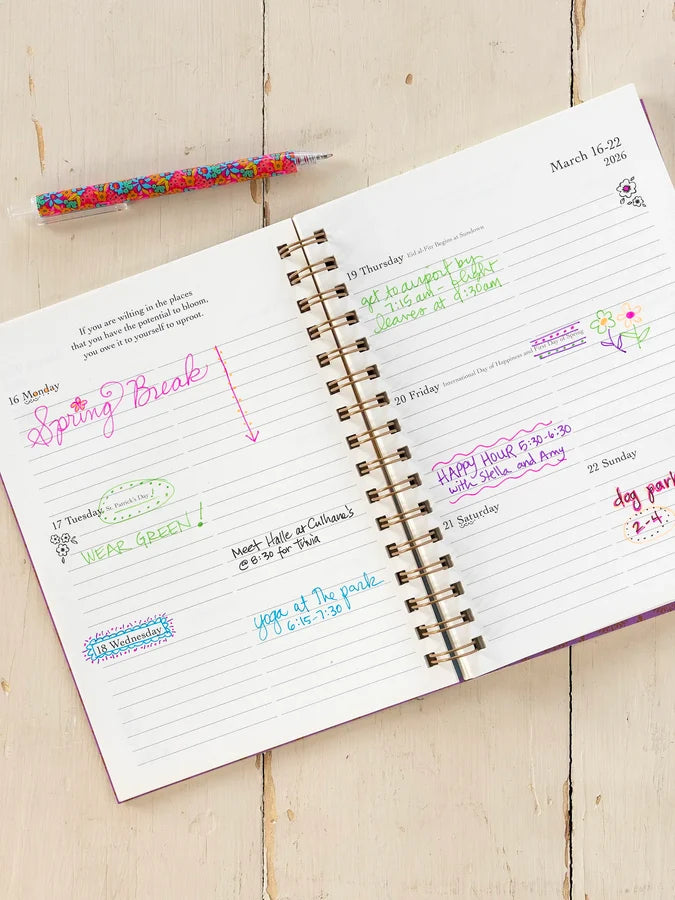 If you are wilting in the places
that you have the potential to bloom,
you owe it to yourself to uproot.
16 Monday
Spring Break
17 Tuesday St. Patrick's Day
WEAR GREEN!
Meet Halle at Culhane's
@ 8:30 for trivia
18 Wednesday
yoga at The park
6:15-7:30
March 16-22
2026
19 Thursday Eid al-Fitr Begins at Sundown
get to airport by
7:15 am - flight
leaves at 9:30am
20 Friday International Day of Happiness and First Day of Spring
HAPPY HOUR 5:30-6:30
with Stella and Amy
21 Saturday
22 Sunday
dog park
2-4